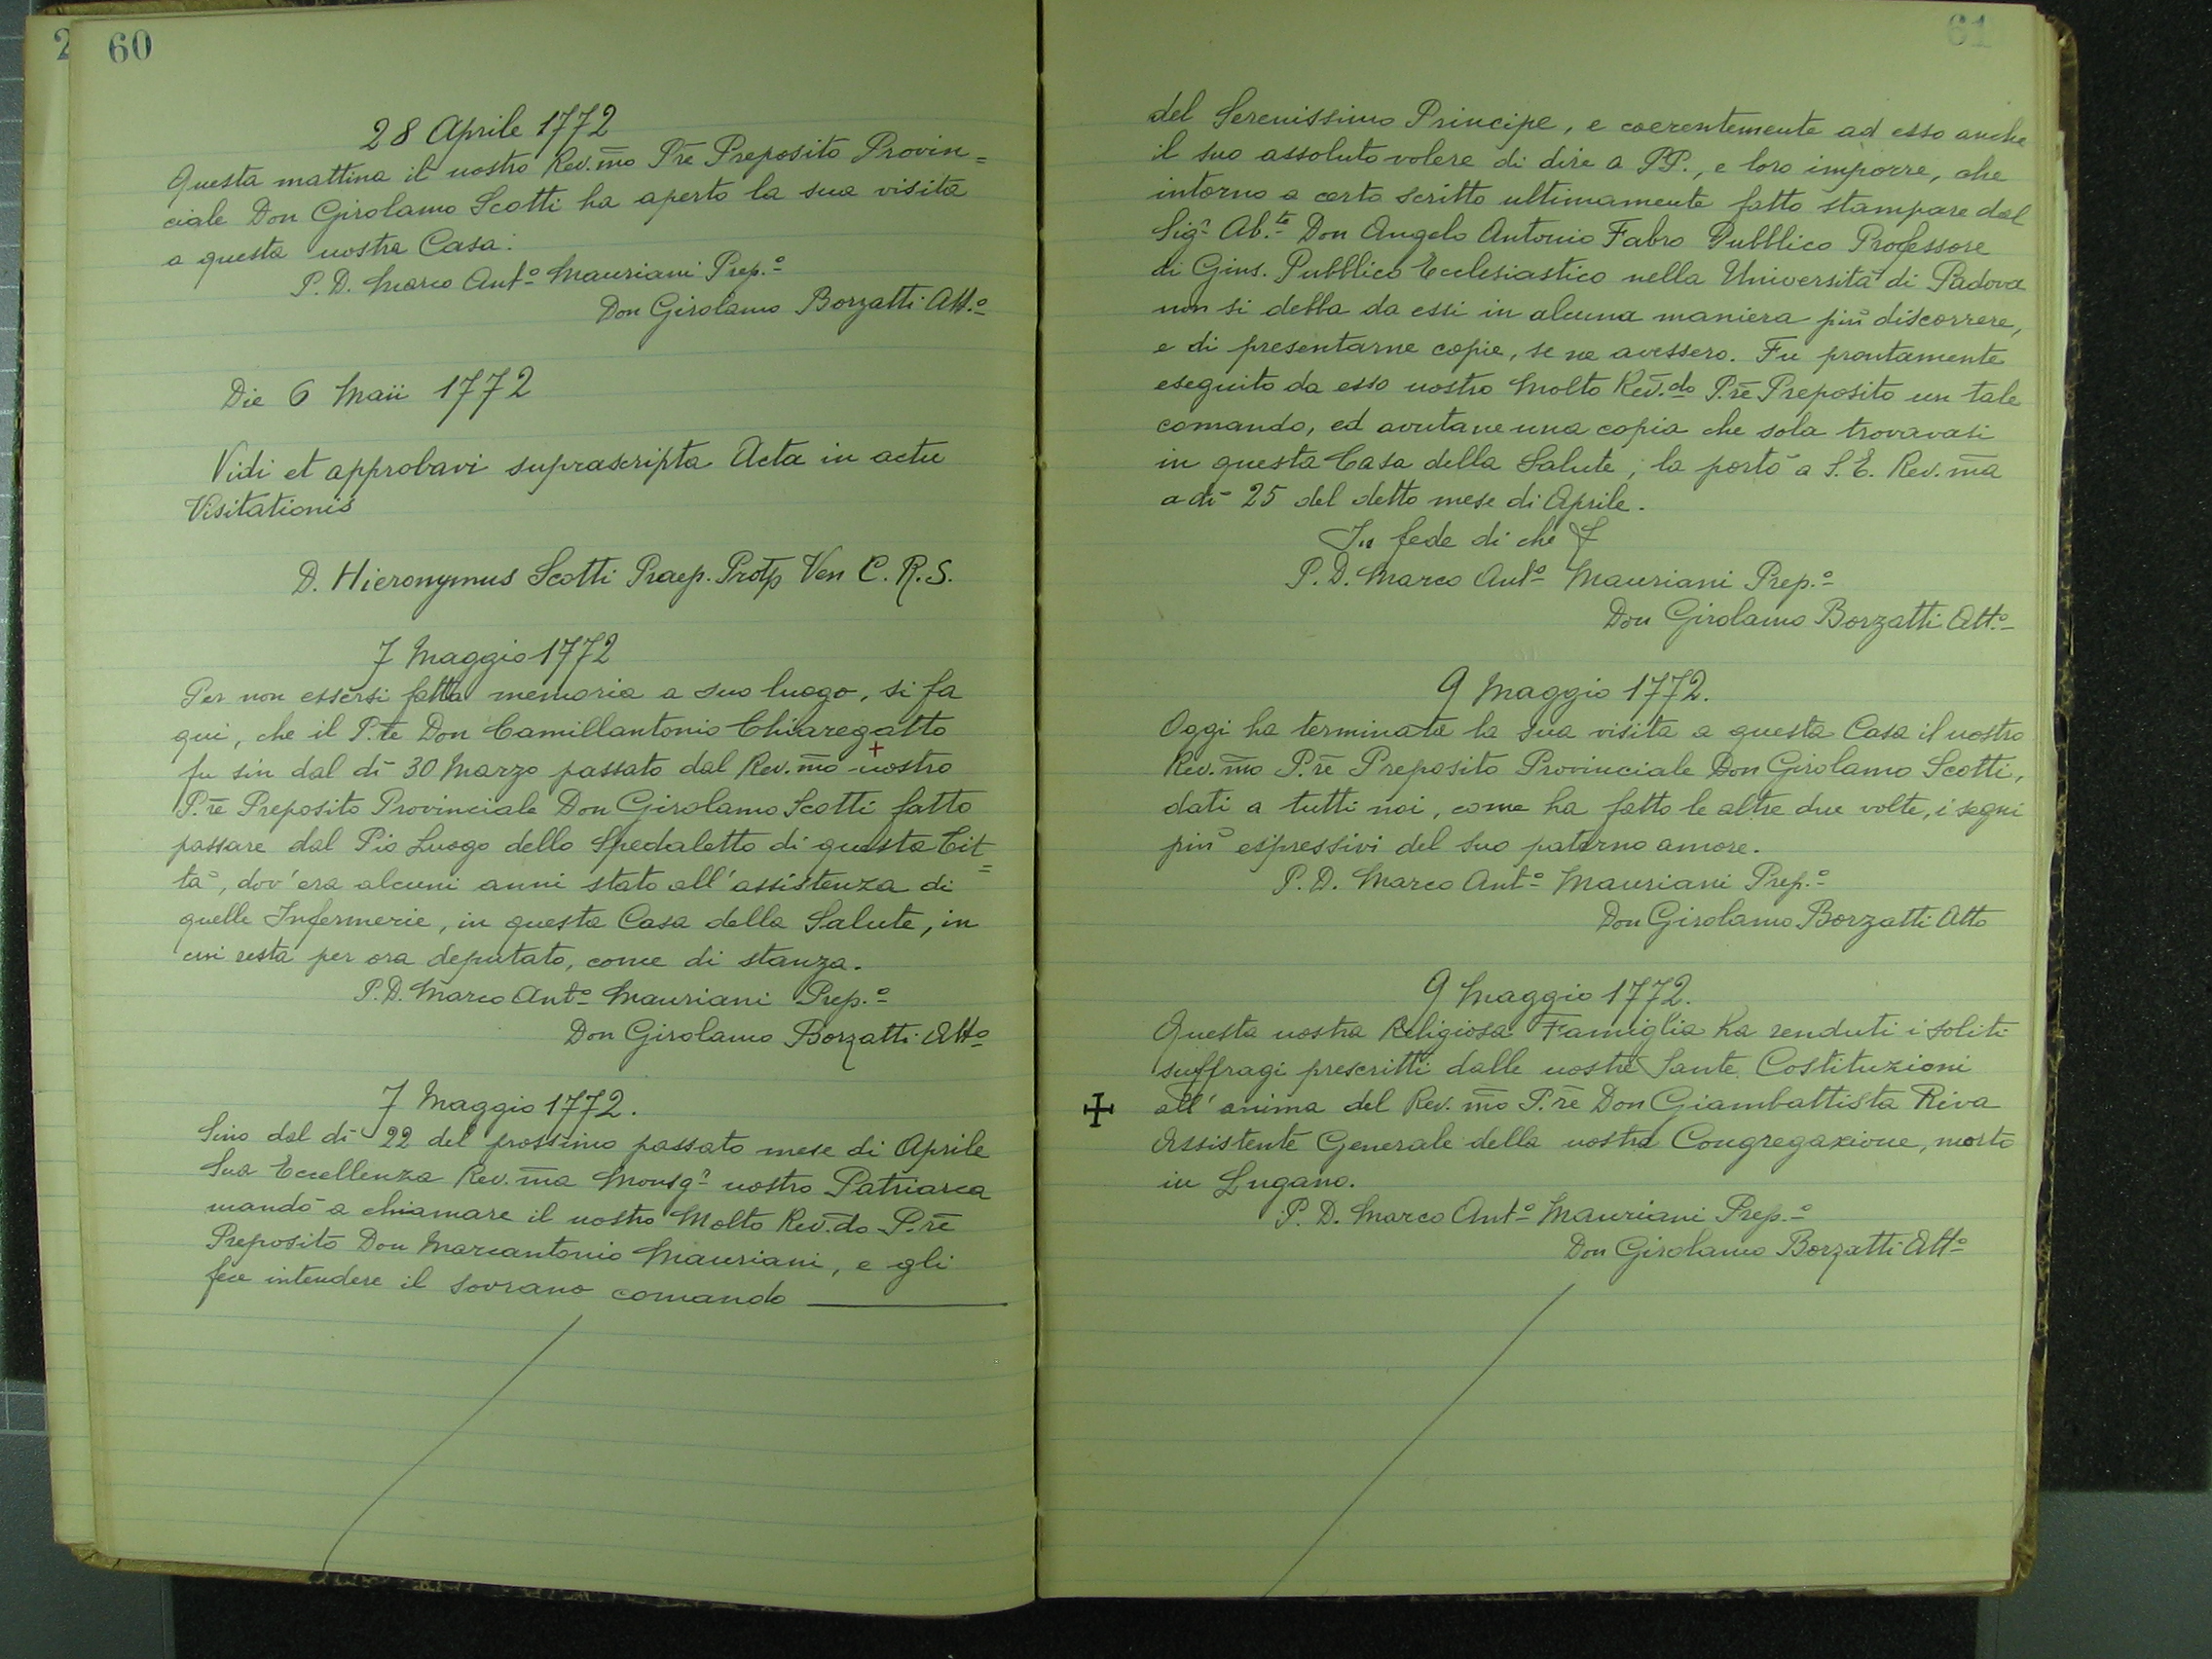 2
60
28 Aprile 1772
Questa mattina il nostro Rev.m̄o Pr̄e Preposito Provin=
ciale Don Girolamo Scotti ha aperto la sua visita
a questa nostra Casa.
P. D. Marco Ant.º Mauriani Prep.º
Don Girolamo Borzatti Att.º
Die 6 Maii 1772
Vidi et approbavi suprascripta Acta in actu
Visitationis
D. Hieronymus Scotti Praep. Ven C. R. S.
7 Maggio 1772
Per non essersi fatta memoria a suo luogo, si fa
qui, che il P.te Don Camillantonio Chiaregatto
+
fu sin dal dì 30 Marzo passato dal Rev.m̄o nostro
P.r̄e Preposito Provinciale Don Girolamo Scotti fatto
passare dal Pio Luogo dello Spedaletto di questa Cit=
tà, dov'era alcuni anni stato all'assistenza di
quelle Infermerie, in questa Casa della Salute, in
cui resta per ora deputato, come di stanza.
P. D. Marco Ant.º Mauriani Prep.º
Don Girolamo Borzatti Att.º
7 Maggio 1772.
Sino dal dì 22 del prossimo passato mese di Aprile
Sua Eccellenza Rev.m̄a Monsg.r nostro Patriarca
mandò a chiamare il nostro Molto Rev̄.do P.r̄e
Preposito Don Marcantonio Mauriani, e gli
fece intendere il sovrano comando
61
del Serenissimo Principe, e coerentemente ad esso anche
il suo assoluto volere di dire a PP., e loro imporre, che
intorno a certo scritto ultimamente fatto stampare dal
Sig.r Ab.te Don Angelo Antonio Fabro Pubblico Professore
di Gius. Pubblico Ecclesiastico nella Università di Padova
non si debba da essi in alcuna maniera più discorrere,
e di presentarne copie, se ne avessero. Fu prontamente
eseguito da esso nostro Molto Rev̄.do P.r̄e Preposito un tale
comando, ed avutane una copia che sola trovavasi
in questa Casa della Salute, la portò a S. E. Rev.m̄a
a dì 25 del detto mese di Aprile.
In fede di che
P. D. Marco Ant.º Mauriani Prep.º
Don Girolamo Borzatti Att.º
9 Maggio 1772.
Oggi ha terminata la sua visita a questa Casa il nostro
Rev.m̄o P.r̄e Preposito Provinciale Don Girolamo Scotti,
dati a tutti noi, come ha fatto le altre due volte, i segni
più espressivi del suo paterno amore.
P. D. Marco Ant.º Mauriani Prep.º
Don Girolamo Borzatti Atto
9 Maggio 1772.
Questa nostra Religiosa Famiglia ha renduti i soliti
suffragi prescritti dalle nostre Sante Costituzioni
all'anima del Rev.m̄o P.r̄e Don Giambattista Riva
Assistente Generale della nostra Congregazione, morto
in Lugano.
P. D. Marco Ant.º Mauriani Prep.º
Don Girolamo Borzatti Att.º